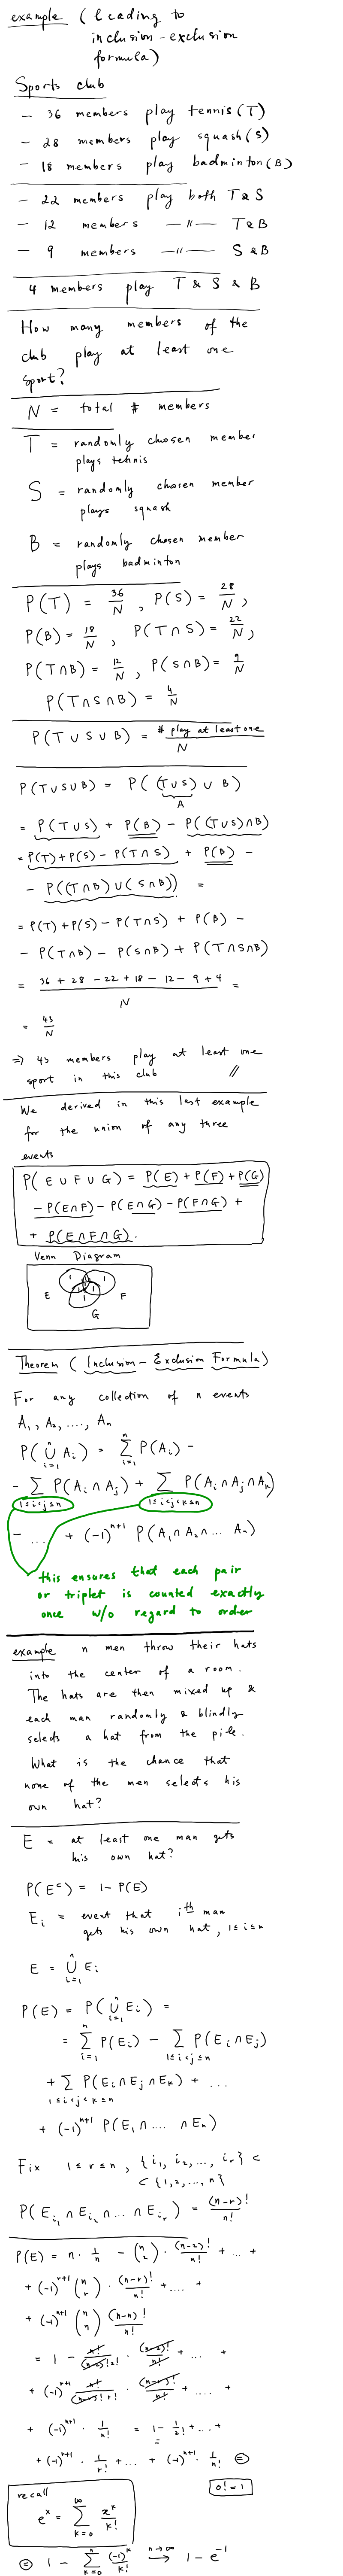 example (leading to
inclusion-exclusion
formula)
Sports club
- 36 members play tennis (T)
- 28 members play squash (S)
- 18 members play badminton (B)
- 22 members play both T & S
- 12 members -"- T & B
- 9 members -"- S & B
4 members play T & S & B
How many members of the
club play at least one
sport?
N = total # members
T = randomly chosen member
plays tennis
S = randomly chosen member
plays squash
B = randomly chosen member
plays badminton
P(T) = 36/N , P(S) = 28/N ,
P(B) = 18/N , P(T∩S) = 22/N ,
P(T∩B) = 12/N , P(S∩B) = 9/N
P(T∩S∩B) = 4/N
P(T∪S∪B) = # play at least one / N
P(T∪S∪B) = P((T∪S) ∪ B)
A
= P(T∪S) + P(B) - P((T∪S)∩B)
= P(T)+P(S) - P(T∩S) + P(B) -
- P((T∩B)∪(S∩B)) =
= P(T)+P(S) - P(T∩S) + P(B) -
- P(T∩B) - P(S∩B) + P(T∩S∩B)
= (36 + 28 - 22 + 18 - 12 - 9 + 4)/N =
= 43/N
⇒ 43 members play at least one
sport in this club //
We derived in this last example
for the union of any three
events
P(E∪F∪G) = P(E) + P(F) + P(G)
- P(E∩F) - P(E∩G) - P(F∩G) +
+ P(E∩F∩G).
Venn Diagram
E F
G
Theorem (Inclusion-Exclusion Formula)
For any collection of n events
A₁, A₂, ...., Aₙ
P(∪_{i=1}^{n} A_i) = ∑_{i=1}^{n} P(A_i) -
- ∑_{1≤i<j≤n} P(A_i ∩ A_j) + ∑_{1≤i<j<k≤n} P(A_i ∩ A_j ∩ A_k)
- ... + (-1)^{n+1} P(A₁∩A₂∩... Aₙ)
this ensures that each pair
or triplet is counted exactly
once w/o regard to order
example n men throw their hats
into the center of a room.
The hats are then mixed up &
each man randomly & blindly
selects a hat from the pile.
What is the chance that
none of the men selects his
own hat?
E = at least one man gets
his own hat?
P(E^c) = 1 - P(E)
E_i = event that i^th man
gets his own hat, 1≤i≤n
E = ∪_{i=1}^{n} E_i
P(E) = P(∪_{i=1}^{n} E_i) =
= ∑_{i=1}^{n} P(E_i) - ∑_{1≤i<j≤n} P(E_i∩E_j)
+ ∑_{1≤i<j<k≤n} P(E_i∩E_j∩E_k) + ...
+ (-1)^{n+1} P(E₁∩.... ∩Eₙ)
Fix 1≤r≤n , {i₁, i₂, ..., i_r} ⊂
⊂ {1,2,..., n}
P(E_{i₁}∩E_{i₂}∩...∩E_{i_r}) = (n-r)!/n!
P(E) = n · 1/n - (n 2) · (n-2)!/n! + ... +
+ (-1)^{r+1} (n r) · (n-r)!/n! + .... +
+ (-1)^{n+1} (n n) (n-n)!/n!
= 1 - n!/((n-2)! 2!) · (n-2)!/n! + ... +
+ (-1)^{r+1} n!/((n-r)! r!) · (n-r)!/n! + .... +
+ (-1)^{n+1} · 1/n! = 1 - 1/2! + ... +
+ (-1)^{r+1} · 1/r! + ... + (-1)^{n+1} · 1/n! =
0! = 1
recall
e^x = ∑_{k=0}^{∞} x^k/k!
= 1 - ∑_{k=0}^{n} (-1)^k/k! →(n→∞) 1 - e^{-1}